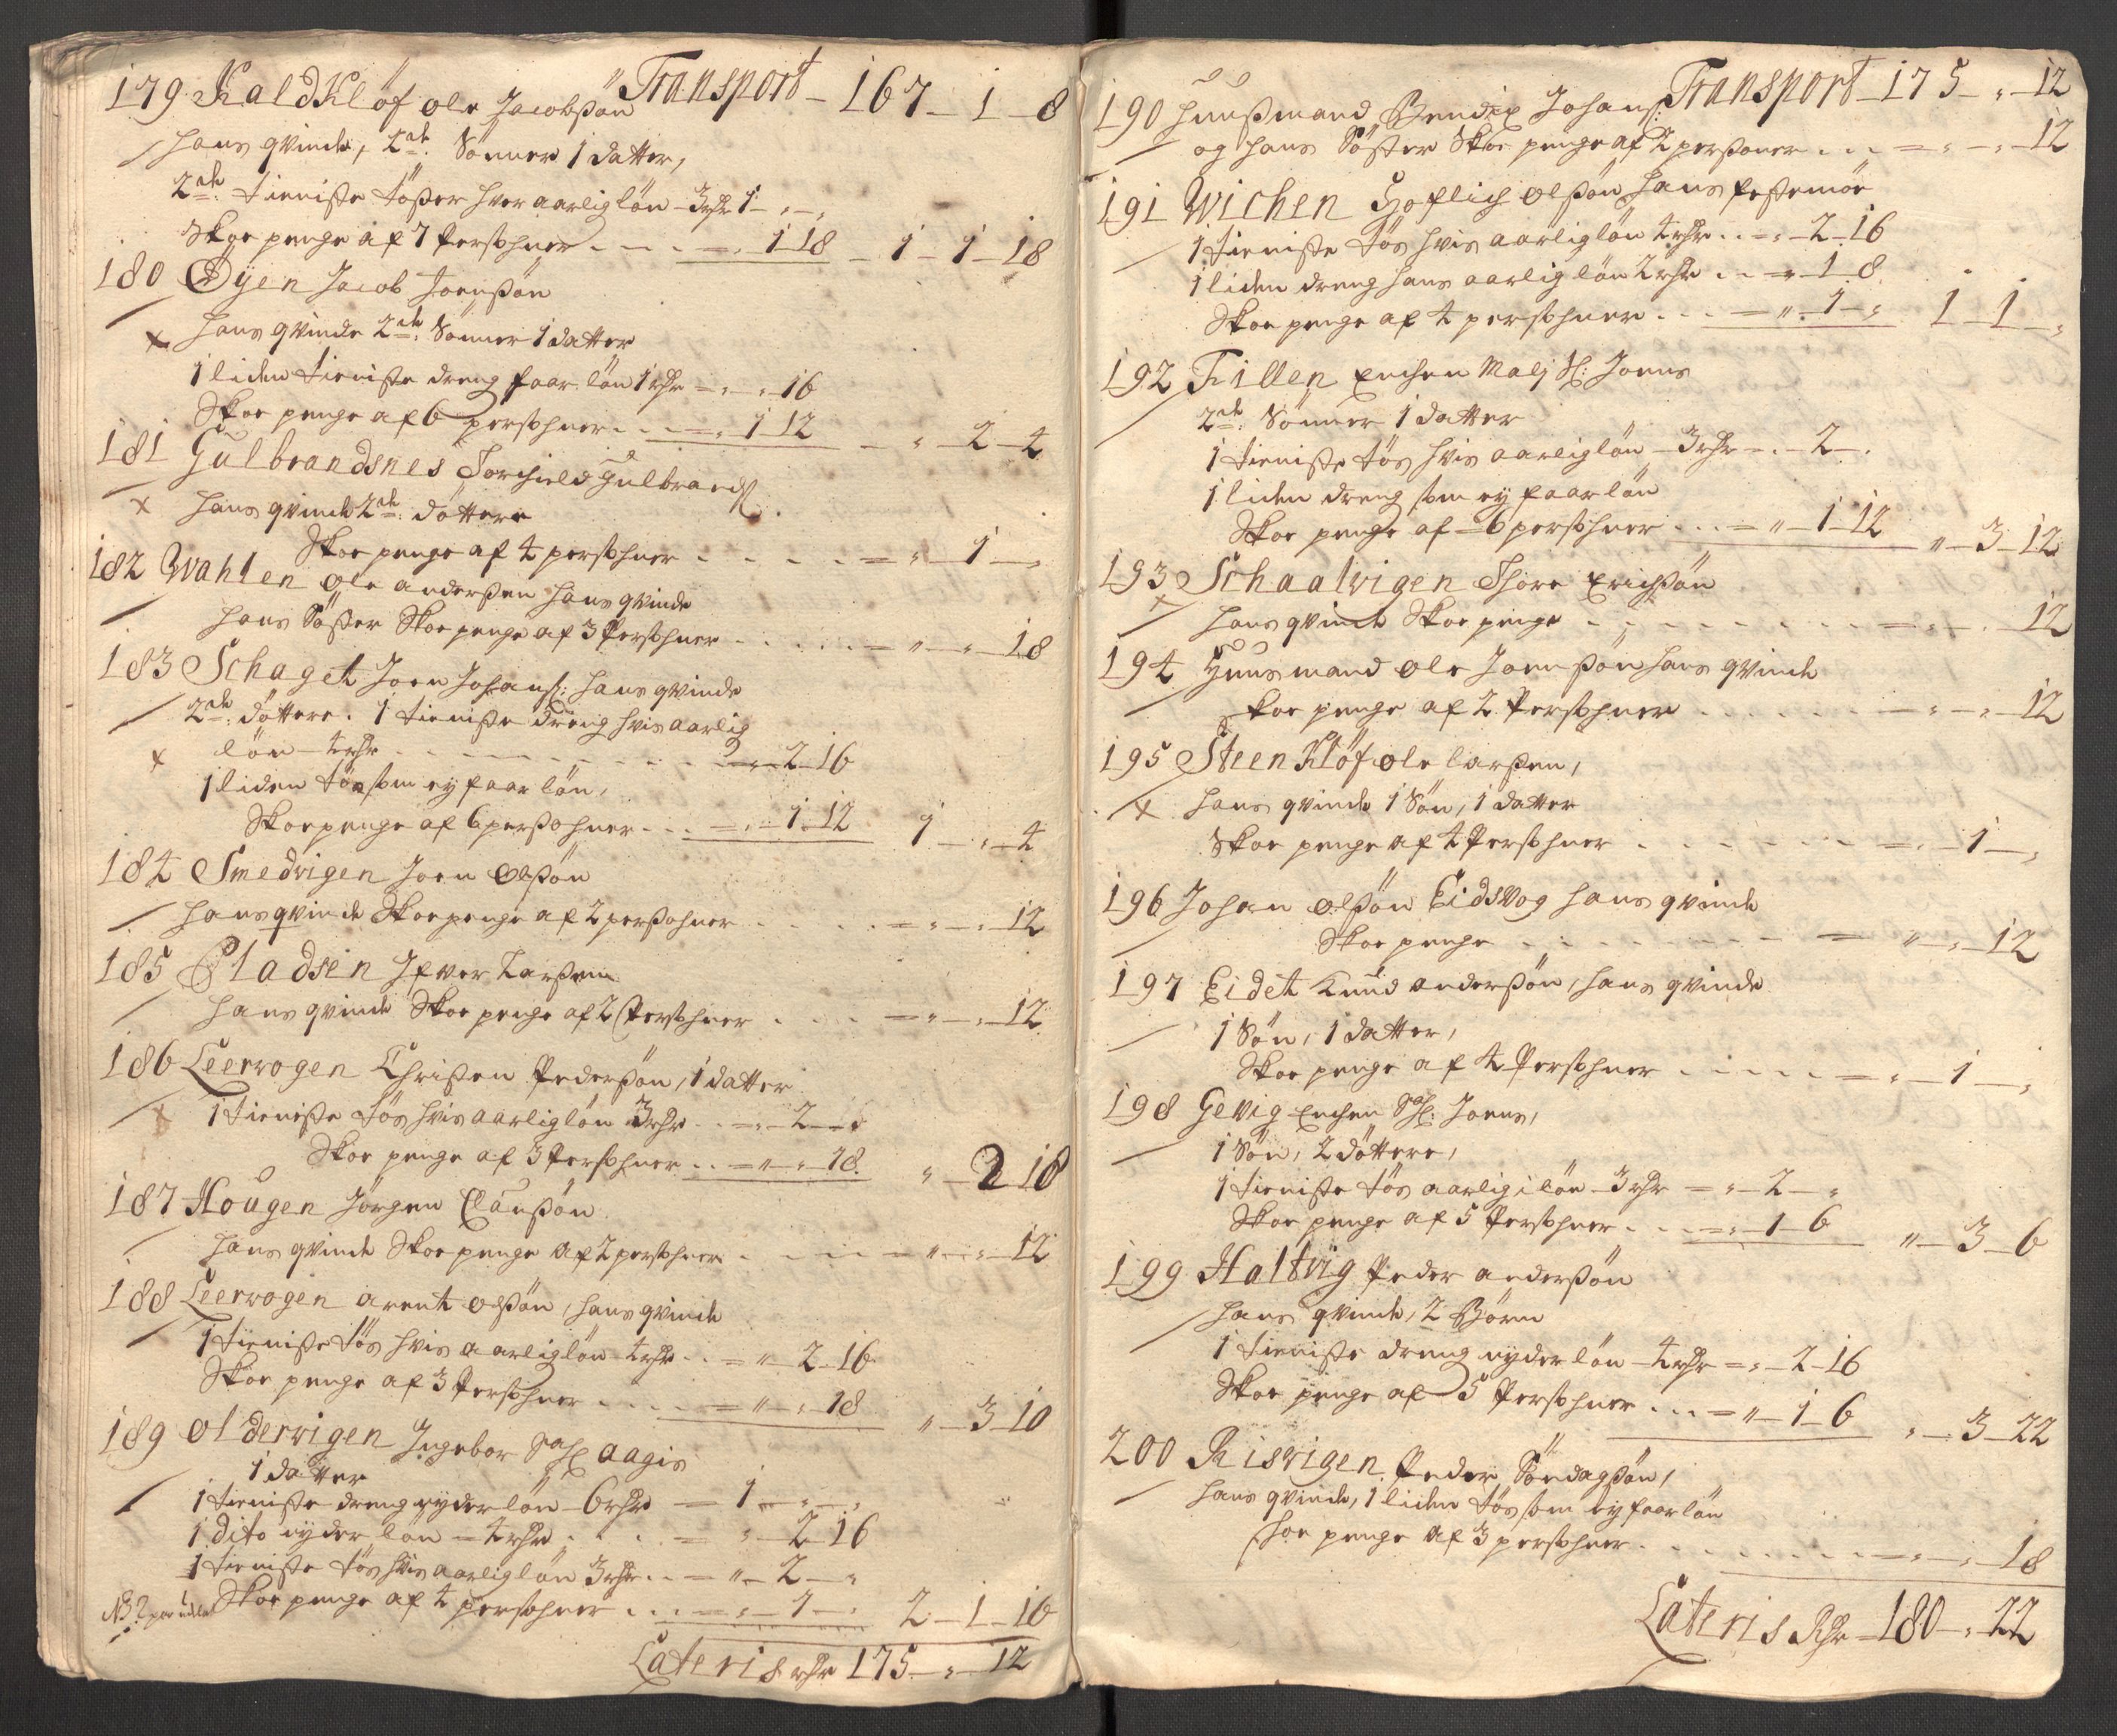 Transport – 167 – 1 – 8
179 Kaldkløf Ole Jacobßøn
hans qvinde, 2de: Sønner 1 datter,
2de: tieniste tøßer hver aarlig løn 3 rdr 1 – „ – „
Skoe penge af 7 Perßohner . . . – „ 1 18 – 1 – 1 – 18
180 Øyen Jacob Joenßøn
hans qvinde 2de: Sønner 1 datter
1 liden tieniste dreng faar løn 1 rdr – „ – „ 16
Skoe penge af 6 perßohner . . – „ 1 12 – „ – 2 – 4
181 Gulbrandsnes Torchield Gulbrands:
hans qvinde 2de: døttere
Skoe penge af 4 perßohner . . . . – „ – 1 – „
182 Wahlen Ole Anderßen hans qvinde
hans Søster Skoe penge af 3 Perßohner . . . . – „ – „ – 18
183 Schaget Joen Johans: hans qvinde
2de: døttere. 1 tieniste dreng hvis aarlig
løn 4 rdr . . . . . . . – „ – 2 – 16
1 liden tøs som ey faar løn,
Skoe penge af 6 perßohner . . . – „ – 1 – 12 1 – „ – 4
184 Smedvigen Joen Olßøn
hans qvinde Skoe penge af 2 perßohner . . . . – „ – „ – 12
185 Pladsen Ifver Larßen
hans qvinde Skoe penge af 2 Perßohner . . . – „ – „ – 12
186 Leervogen Christen Pederßøn, 1 datter
1 tieniste tøs hvis aarlig løn 3 rdr . . – „ – 2 – „
Skoe penge af 3 Perßohner . . – „ – „ – 18 „ – 2 18
187 Hougen Jørgen Claußøn
hans qvinde Skoe penge af 2 perßohner . . . . – „ – „ – 12
188 Leervogen Arent Olßøn, hans qvinde
1 tieniste tøs hvis aarlig løn 4 rdr . . – „ – 2 – 16
Skoe penge af 3 Perßohner . . . . – „ – „ – 18 „ – 3 – 10
189 Oldervigen Ingebor Sal: Aagis
1 datter
1 tieniste dreng nyder løn 6 rdr – 1 – „ – „
1 dito nyder løn – 4 rdr . . . – „ – 2 – 16
1 tieniste tøs hvis aarlig løn 3 rdr . . – „ – 2 – „
Skoe penge af 4 perßohner . . . – „ – 1 – „ 2 – 1 – 16
Lateris rdr 175 – „ – 12
Transport – 175 – „ – 12
190 Huußmand Bendix Johans:
og hans Søster Skoe penge af 2 perßoner . . . – „ – „ – 12
191 Wichen Hoflich Olßøn hans festemøe
1 tieniste tøs hvis aarlig løn 4 rdr . . – „ – 2 – 16
1 liden dreng hans aarlig løn 2 rdr . . – „ – 1 – 8
Skoe penge af 4 perßohner . . . – „ – 1 – „ 1 – 1 – „
192 Tillen Enchen Malj Sl: Joens
2de: Sønner 1 datter
1 tieniste tøs hvis aarlig løn 3 rdr – „ – 2 – „
1 liden dreng som ey faar løn
Skoe penge af – 6 perßohner . . . – „ – 1 – 12 „ – 3 – 12
193 Schaalvigen Thore Erichßøn
hans qvinde Skoe penge . . . . . . . – „ – „ – 12
194 Huusmand Ole Joenßøn hans qvinde
Skoe penge af 2 Perßohner . . . . . . – „ – „ – 12
195 Steenkløf Ole Larßen,
hans qvinde 1 Søn, 1 datter
Skoe penge af 4 Perßohner . . . . . . – „ – 1 – „
196 Johan Olßøn Eidsvog hans qvinde
Skoe penge . . . . . . . . – „ – „ – 12
197 Eidet Knud Anderßøn, hans qvinde
1 Søn, 1 datter,
Skoe penge af 4 Perßohner . . . . . – „ – 1 – „
198 Gevig Enchen Sal: Joens,
1 Søn, 2 døttere,
1 tieniste tøs aarlig i løn 3 rdr – „ – 2 – „
Skoe penge af 5 Perßohner . . . – „ – 1 – 6 „ – 3 – 6
199 Haltvig Peder Anderßøn
hans qvinde, 2 Børn
1 tieniste dreng nyder løn – 4 rdr – „ – 2 – 16
Skoe penge af 5 Perßohner . . . – „ – 1 – 6 „ – 3 – 22
200 Risvigen Peder Søndagßøn,
hans qvinde, 1 liden tøs som ey faar løn
Skoe penge af 3 perßohner . . . . . . . – „ – „ – 18
Lateris Rdr – 180 – „ 22